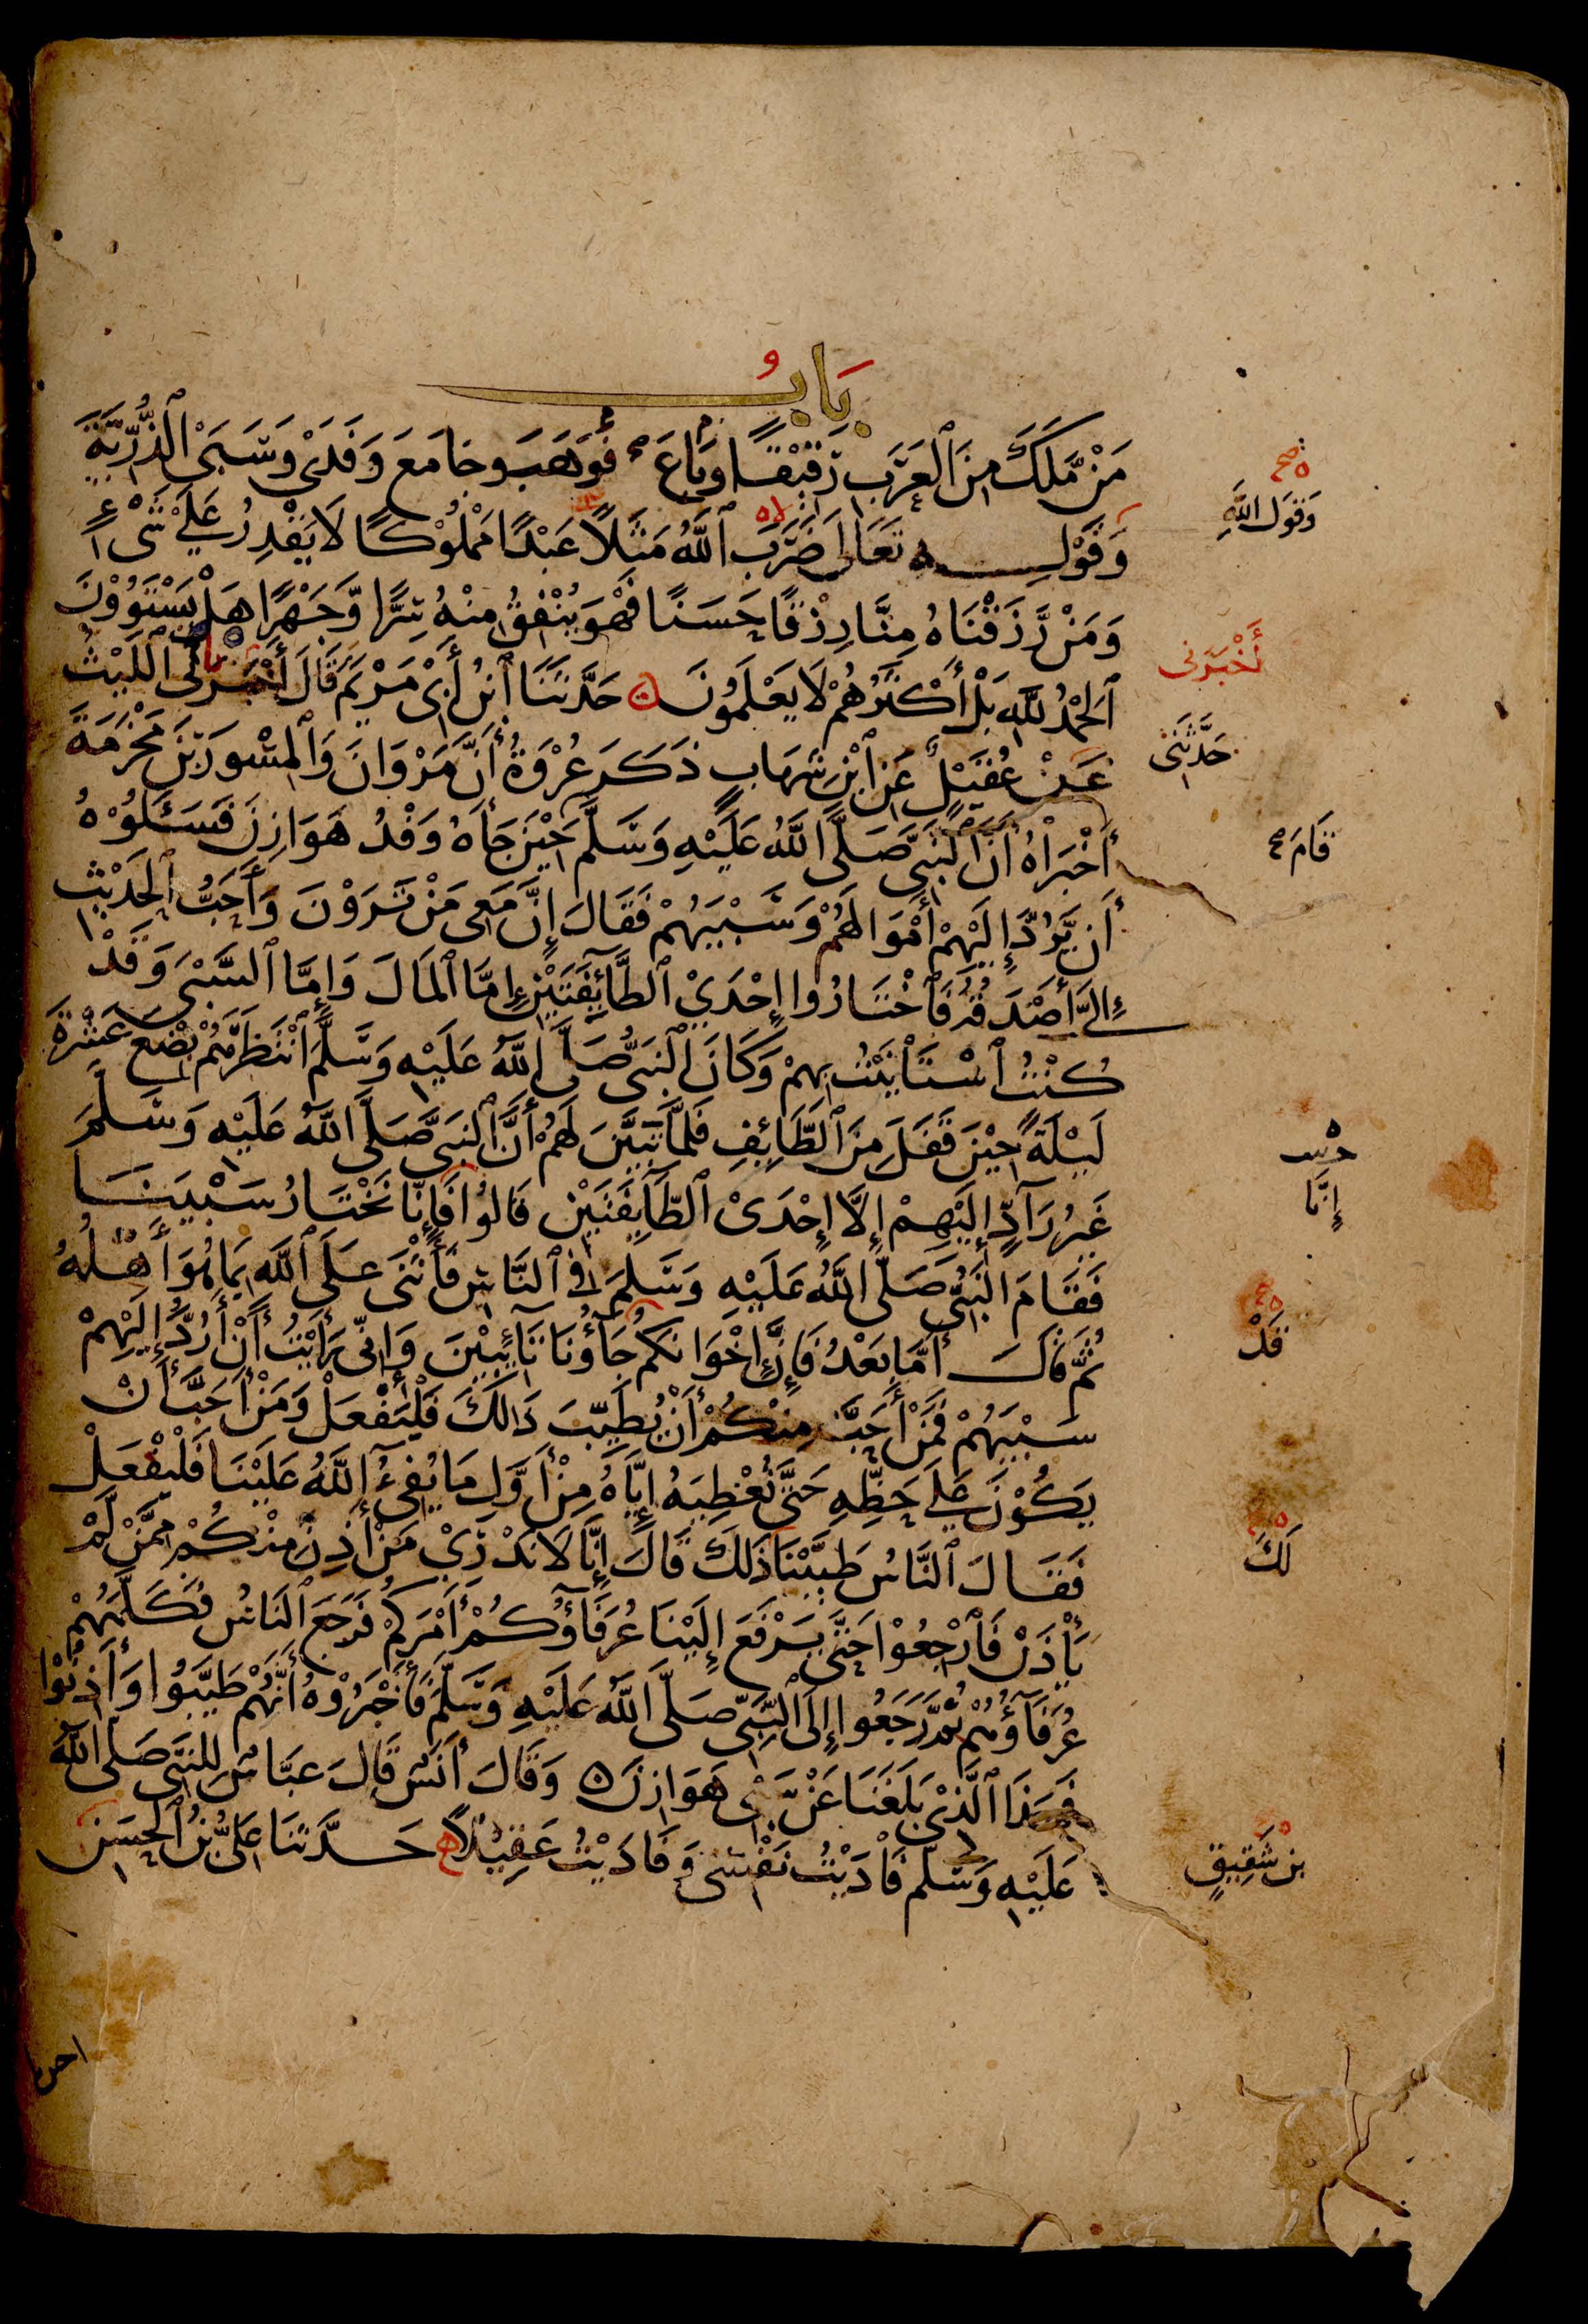 بَابُ
مَنْ مَّلَكَ مِنَ ٱلْعَرَبِ رَقِيْقًا وَبَاعَ فَوَهَبَ وجَامَعَ وَفَدَىْ وَسَبَىْ ٱلذُّرِّيَّةَ
وَقَوْلِهِ تَعَالَى ضَرَبَ ٱللَّهُ مَثَلًا عَبْدًا مَمْلُوْكًا لَا يَقْدِرُ عَلَىْ شَىْءٍ
وَمَنْ رَّزَقْنَاهُ مِنَّا رِزْقًا حَسَنًا فَهْوَ يُنْفِقُ مِنْهُ سِرًّا وَّجَهْرًا هَلْ يَسْتَوُوْنَ
ٱلحَمْدُ لِلَّهِ بَلْ أَكْثَرُهُمْ لَا يَعْلَمُوْنَ حَدَّثَنَا ٱبْنُ أَبِىْ مَرْيَمَ قَالَ أَخْبَرَنِى ٱللَّيْثُ
عَنْ عُقَيْلٍ عَنِ ٱبْنِ شِهَابٍ ذَكَرَ عُرْوَةُ أَنَّ مَرْوَانَ وَٱلْمِسْوَرَ بْنَ مَخْرَمَةَ
أَخْبَرَاهُ أَنَّ ٱلنَّبِىَّ صَلَّى ٱللَّهُ عَلَيْهِ وَسَلَّمَ حِيْنَ جَاءَهُ وَفْدُ هَوَازِنَ فَسَئَلُوْهُ
أَن يَّرُدَّ إِلَيْهِمْ أَمْوَالَهُمْ وَسَبْيَهُمْ فَقَالَ إِنَّ مَعِى مَنْ تَرَوْنَ وَأَحَبُّ ٱلْحَدِيْثِ
إِلَىَّ أَصْدَقُهُ فَٱخْتَارُوا إِحْدَىْ ٱلطَّآئِفَتَيْنِ إِمَّا ٱلْمَالَ وَإِمَّا ٱلسَّبْىَ وَقَدْ
كُنْتُ ٱسْتَأْنَيْتُ بِهِمْ وَكَانَ ٱلنَّبِىُّ صَلَّى ٱللَّهُ عَلَيْهِ وَسَلَّمَ ٱنْتَظَرَهُمْ بِضْعَ عَشْرَةَ
لَيْلَةً حِيْنَ قَفَلَ مِنَ ٱلطَّائِفِ فَلَمَّا تَبَيَّنَ لَهُمْ أَنَّ ٱلنَّبِىَّ صَلَّى ٱللَّهُ عَلَيْهِ وَسَلَّمَ
غَيْرُ رَآدٍّ إِلَيْهِمْ إِلَّا إِحْدَىْ ٱلطَّآئِفَتَيْنِ قَالُوْا فَإِنَّا نَخْتَارُ سَبْيَنَا
فَقَامَ ٱلنَّبِىُّ صَلَّى ٱللَّهُ عَلَيْهِ وَسَلَّمَ فِى ٱلنَّاسِ فَأَثْنَىْ عَلَى ٱللَّهِ بِمَا هُوَ أَهْلُهُ
ثُمَّ قَالَ أَمَّا بَعْدُ فَإِنَّ إِخْوَانَكُمْ جَآؤُنَا تَآئِبِيْنَ وَإِنِّى رَأَيْتُ أَنْ أَرُدَّ إِلَيْهِمْ
سَبْيَهُمْ فَمَنْ أَحَبَّ مِنْكُمْ أَنْ يُطَيِّبَ ذَالِكَ فَلْيَفْعَلْ وَمَنْ أَحَبَّ أَنْ
يَكُوْنَ عَلَىْ حَظِّهِ حَتَّى نُعْطِيَهُ إِيَّاهُ مِنْ أَوَّلِ مَا يُفِىْءُ ٱللَّهُ عَلَيْنَا فَلْيَفْعَلْ
فَقَالَ ٱلنَّاسُ طَيَّبْنَا ذَلِكَ قَالَ إِنَّا لَا نَدْرِيْ مَنْ أَذِنَ مِنْكُمْ مِمَّنْ لَّمْ
يَأْذَنْ فَٱرْجِعُوْا حَتَّى يَرْفَعَ إِلَيْنَا عُرَفَآؤُكُمْ أَمْرَكُمْ فَرَجَعَ ٱلنَّاسُ فَكَلَّمَهُمْ
عُرَفَآؤُهُمْ ثُمَّ رَجَعُوا إِلَى ٱلنَّبِىِّ صَلَّى ٱللَّهُ عَلَيْهِ وَسَلَّمَ فَأَخْبَرُوْهُ أَنَّهُمْ طَيَّبُوا وَأَذِنُوْا
فَهَذَا ٱلَّذِىْ بَلَغَنَا عَنْ سَبْىِ هَوَازِنَ ۞ وَقَالَ أَنَسٌ قَالَ عَبَّاسٌ لِلنَّبِىِّ صَلَّى ٱللَّهُ
عَلَيْهِ وَسَلَّمَ فَادَيْتُ نَفْسِىْ وَفَادَيْتُ عَقِيْلًا حَدَّثَنَا عَلِىُّ بْنُ ٱلْحَسَنِ
وَقَوْلِ اللَّهِ
أَخْبَرَنِى
حَدَّثَنِى
قَامَ
إِنَّا
قَدْ
لَكَ
بْنِ شَقِيقٍ